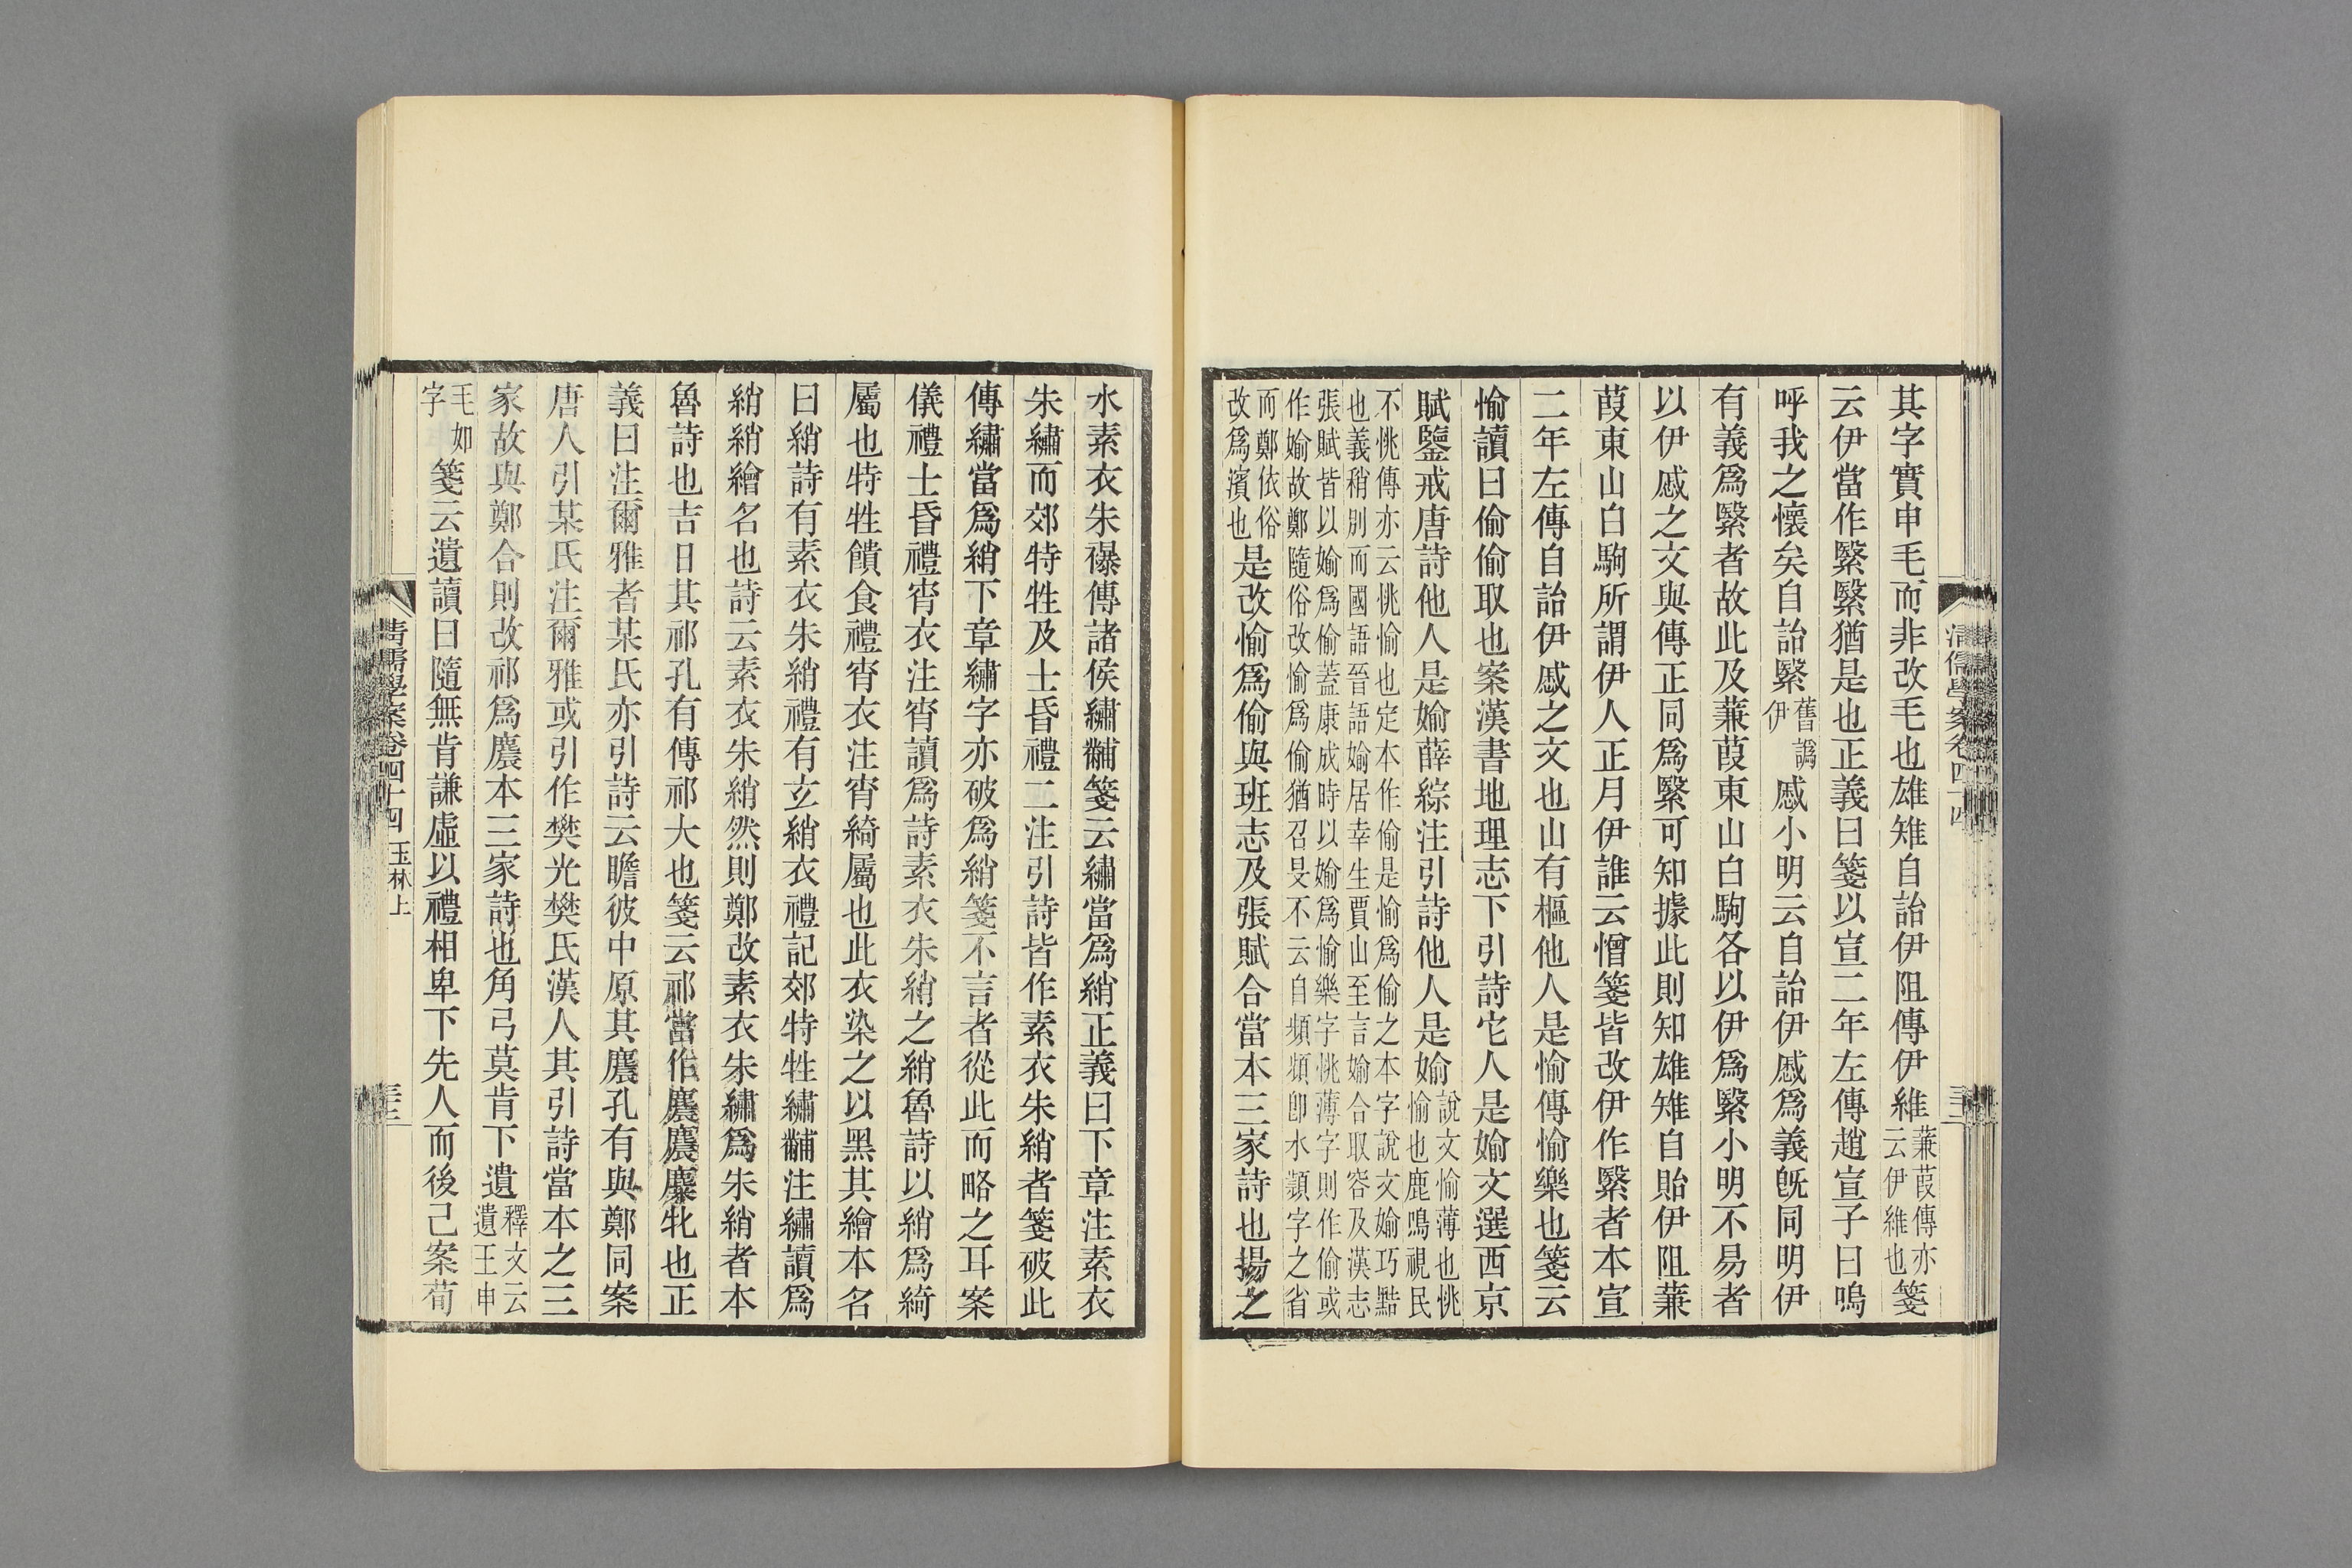 清儒學案卷四十四
三十二
其字實申毛而非改毛也雄雉自詒伊阻傳伊維蒹葭傳亦云伊維也箋
云伊當作繄繄猶是也正義曰箋以宣二年左傳趙宣子曰嗚
呼我之懷矣自詒繄舊譌伊慼小明云自詒伊慼爲義旣同明伊
有義爲繄者故此及蒹葭東山白駒各以伊爲繄小明不易者
以伊慼之文與傳正同爲繄可知據此則知雄雉自貽伊阻蒹
葭東山白駒所謂伊人正月伊誰云憎箋皆改伊作繄者本宣
二年左傳自詒伊慼之文也山有樞他人是愉傳愉樂也箋云
愉讀曰偷偷取也案漢書地理志下引詩它人是媮文選西京
賦鑒戒唐詩他人是媮薛綜注引詩他人是媮說文愉薄也恌愉也鹿鳴視民
不恌傳亦云恌愉也定本作偷是愉爲偷之本字說文媮巧黠
也義稍別而國語晉語媮居幸生賈山至言媮合取容及漢志
張賦皆以媮爲偷蓋康成時以媮爲愉樂字恌薄字則作偷或
作媮故鄭隨俗改愉爲偷猶召旻不云自頻頻卽水顥字之省
而鄭依俗改爲濱也是改愉爲偷與班志及張賦合當本三家詩也揚之
水素衣朱襮傳諸侯繡黼箋云繡當爲綃正義曰下章注素衣
朱繡而郊特牲及士昏禮二注引詩皆作素衣朱綃者箋破此
傳繡當爲綃下章繡字亦破爲綃箋不言者從此而略之耳案
儀禮士昏禮宵衣注宵讀爲詩素衣朱綃之綃魯詩以綃爲綺
屬也特牲饋食禮宵衣注宵綺屬也此衣染之以黑其繒本名
曰綃詩有素衣朱綃禮有玄綃衣禮記郊特牲繡黼注繡讀爲
綃綃繒名也詩云素衣朱綃然則鄭改素衣朱繡爲朱綃者本
魯詩也吉日其祁孔有傳祁大也箋云祁當作麎麎麋牝也正
義曰注爾雅者某氏亦引詩云瞻彼中原其麎孔有與鄭同案
唐人引某氏注爾雅或引作樊光樊氏漢人其引詩當本之三
家故與鄭合則改祁爲麎本三家詩也角弓莫肯下遺釋文云遺王申
毛如字箋云遺讀曰隨無肯謙虛以禮相卑下先人而後己案荀
清儒學案卷四十四 玉林上
三十三